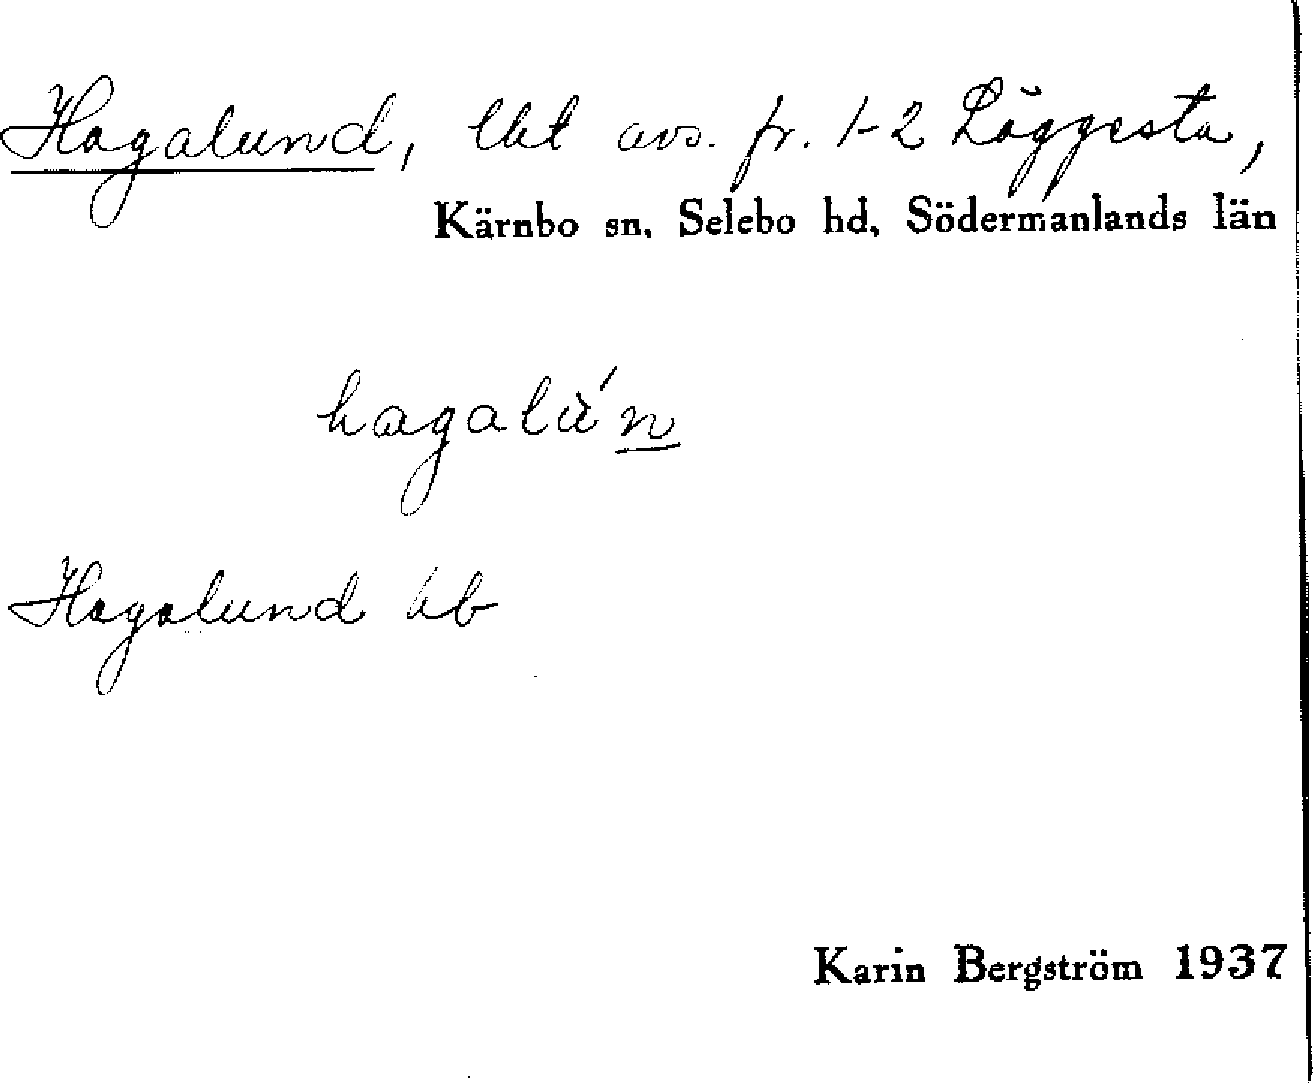 Hagalund, lht avs. fr. 1-2 Läggesta,
Kärnbo sn, Selebo hd, Södermanlands län
hagalu̇́n
Hagalund äb
Karin Bergström 1937